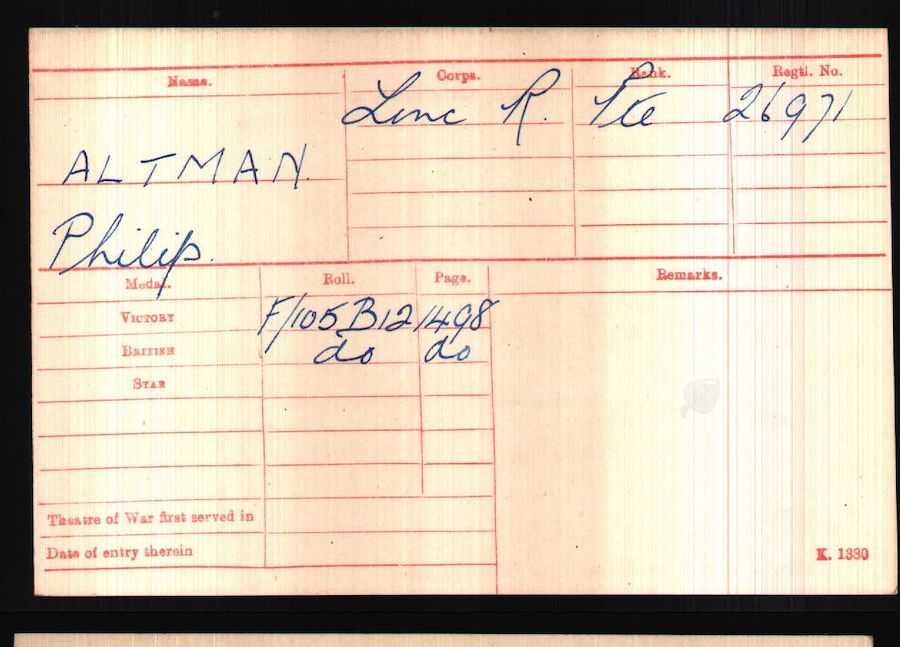 Name. Corps. Rank. Regtl. No.
Linc R. Pte 26971
ALTMAN
Philip.
Medal. Roll. Page. Remarks.
VICTORY F/105 B12 1498
BRITISH do do
STAR
Theatre of War first served in
Date of entry therein
K. 1380